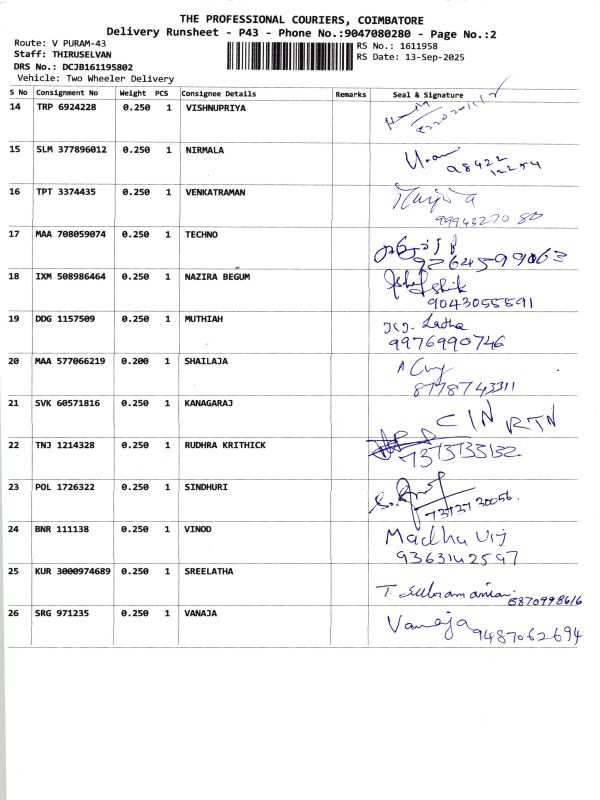 THE PROFESSIONAL COURIERS, COIMBATORE
Delivery Runsheet - P43 - Phone No.:9047080280 - Page No.:2
Route: V PURAM-43
RS No.: 1611958
Staff: THIRUSELVAN
RS Date: 13-Sep-2025
DRS No.: DCJB161195802
Vehicle: Two Wheeler Delivery
S No Consignment No Weight PCS Consignee Details Remarks Seal & Signature
14 TRP 6924228 0.250 1 VISHNUPRIYA
15 SLM 377896012 0.250 1 NIRMALA
16 TPT 3374435 0.250 1 VENKATRAMAN
9994327080
17 MAA 708059074 0.250 1 TECHNO
18 IXM 508986464 0.250 1 NAZIRA BEGUM
9043055591
19 DDG 1157509 0.250 1 MUTHIAH
Latha
9976990746
20 MAA 577066219 0.200 1 SHAILAJA
8778743311
21 SVK 60571816 0.250 1 KANAGARAJ
CIN RTN
22 TNJ 1214328 0.250 1 RUDHRA KRITHICK
7373733132
23 POL 1726322 0.250 1 SINDHURI
24 BNR 111138 0.250 1 VINOD
Madhu
9363142597
25 KUR 3000974689 0.250 1 SREELATHA
T. Subramanian
8870998616
26 SRG 971235 0.250 1 VANAJA
Vanaja 9487062694